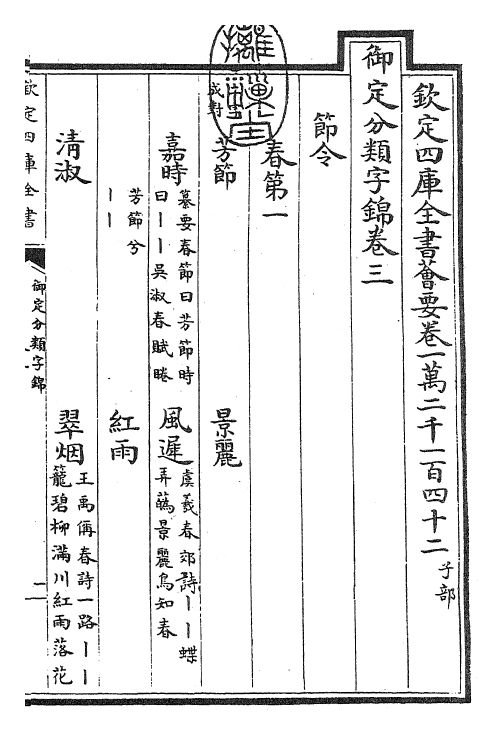 欽定四庫全書薈要卷一萬二千一百四十二 子部
御定分類字錦卷三
節令
春第一
成對
芳節 景麗
嘉時 纂要春節曰芳節時
曰丨丨吳淑春賦睠
風遲 虞羲春郊詩丨丨蝶
弄蘤景麗鳥知春
芳節兮
丨丨
紅雨
清淑
翠烟 王禹偁春詩一路丨丨
籠碧柳滿川紅雨落花
欽定四庫全書
御定分類字錦